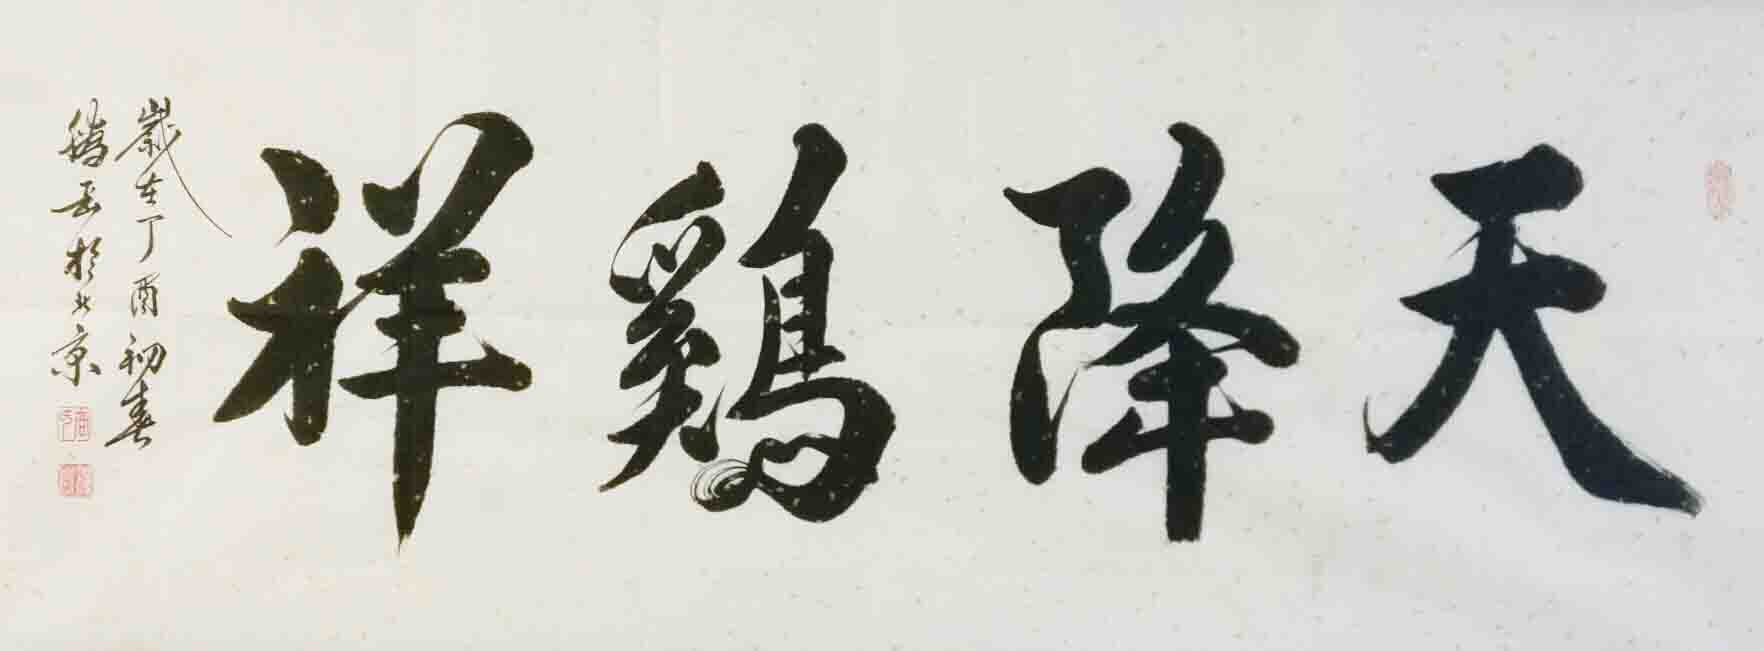 天降鷄祥
歲在丁酉初春
騰岳於北京